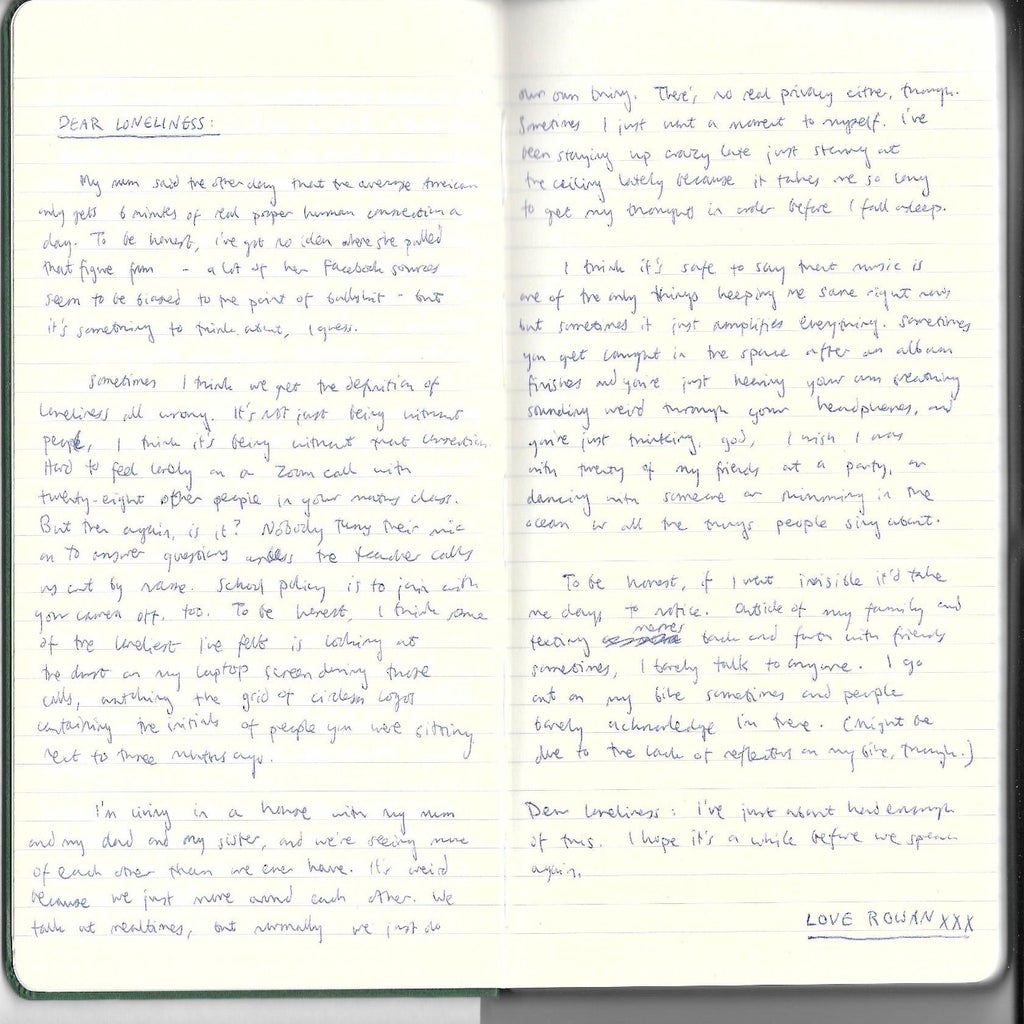 DEAR LONELINESS:
My mum said the other day that the average American
only gets 6 minutes of real proper human connection a
day. To be honest, i've got no idea where she pulled
that figure from - a lot of her Facebook sources
seem to be biased to the point of bullshit - but
it's something to think about, I guess.
Sometimes I think we get the definition of
loneliness all wrong. It's not just being without
people, I think it's being without that connection.
Hard to feel lonely on a Zoom call with
twenty-eight other people in your maths class.
But then again, is it? Nobody turns their mic
on to answer questions unless the teacher calls
us out by name. School policy is to join with
your camera off, too. To be honest, I think some
of the loneliest I've felt is looking at
the dust on my laptop screen during those
calls, watching the grid of circles logos
containing the initials of people you were sitting
next to three months ago.
I'm living in a house with my mum
and my dad and my sister, and we're seeing more
of each other than we ever have. It's weird
because we just move around each other. We
talk at mealtimes, but normally we just do
our own thing. There's no real privacy either, though.
Sometimes I just want a moment to myself. i've
been staying up crazy late just staring at
the ceiling lately because it takes me so long
to get my thoughts in order before I fall asleep.
I think it's safe to say that music is
one of the only things keeping me sane right now
but sometimes it just amplifies everything. Sometimes
you get caught in the space after an album
finishes and you're just hearing your own breathing
sounding weird through your headphones, and
you're just thinking, god, I wish I was
with twenty of my friends at a party, or
dancing with someone or swimming in the
ocean or all the things people sing about.
To be honest, if I went invisible it'd take
me days to notice. Outside of my family and
texting memes back and forth with friends
sometimes, I barely talk to anyone. I go
out on my bike sometimes and people
barely acknowledge I'm there. (Might be
due to the lack of reflectors on my bike, though.)
Dear loneliness: i've just about had enough
of this. I hope it's a while before we speak
again.
LOVE ROWAN XXX